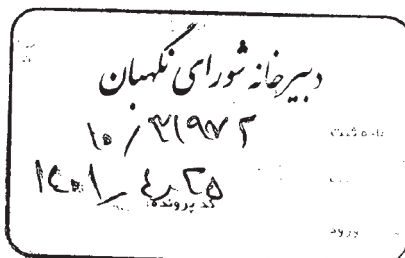 دبیرخانه شورای نگهبان
۱۰/۳۱۹۷۲
۱۴۰۱/۴/۲۵
کد پرونده:
ورود